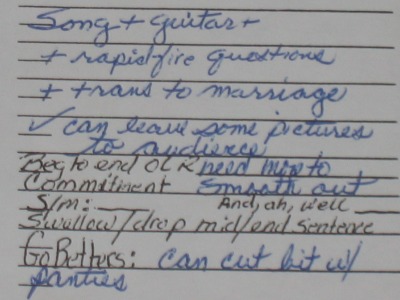 Song + guitar +
+ rapid-fire questions
+ trans to marriage
✓ can leave some pictures
to audience
Beg to end OLR need more to
Commitment Smooth out
S/m: And, ah, well
Swallow/drop mid/end sentence
Go Betters: can cut bit w/
panties